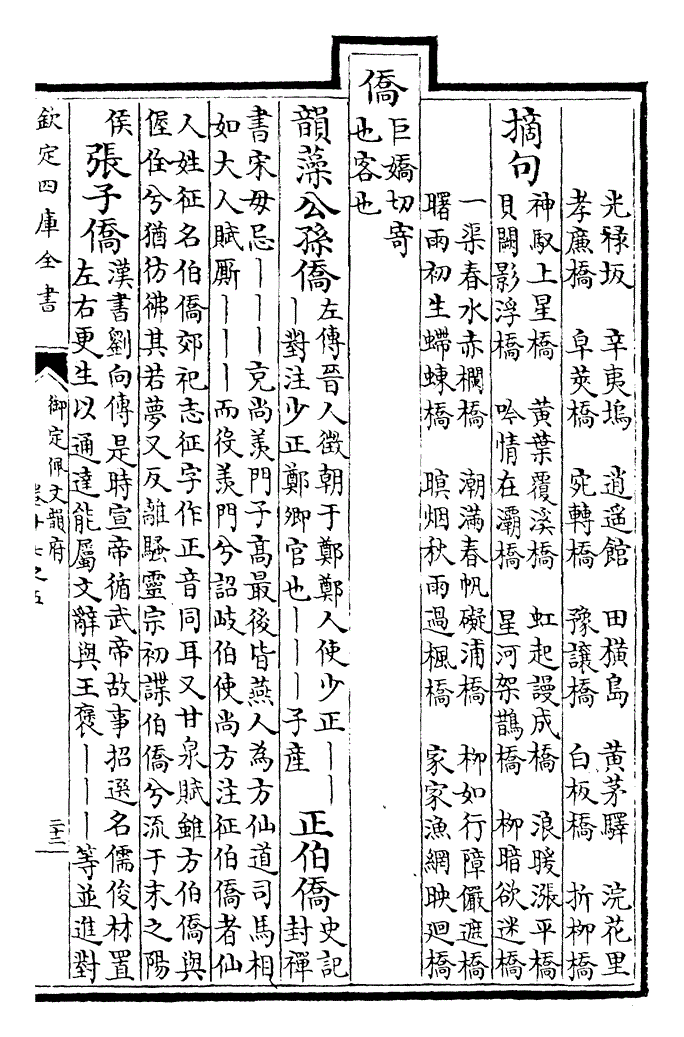 光祿坂　辛夷塢　逍遥館　田橫島　黄茅驛　浣花里
孝廉橋　皁莢橋　宛轉橋　豫讓橋　白板橋　折柳橋
摘句
神馭上星橋　黄葉覆溪橋　虹起謾成橋　浪暖漲平橋
貝闕影浮橋　吟情在灞橋　星河架鵲橋　柳暗欲迷橋
一渠春水赤欄橋　潮滿春帆礙浦橋　柳如行障儼遮橋
曙雨初生螮蝀橋　暝烟秋雨過楓橋　家家漁網映廻橋
僑
巨嬌切寄
也客也
韻藻公孫僑
左傳晉人徵朝于鄭鄭人使少正丨丨
丨對注少正鄭卿官也丨丨丨子產
正伯僑
史記
封禪
書宋毋忌丨丨丨克尚羨門子髙最後皆燕人為方仙道司馬相
如大人賦厮丨丨丨而役羨門兮詔岐伯使尚方注征伯僑者仙
人姓征名伯僑郊祀志征字作正音同耳又甘泉賦雖方伯僑與
偓佺兮猶彷彿其若夢又反離騷靈宗初諜伯僑兮流于末之陽
侯
張子僑
漢書劉向傳是時宣帝循武帝故事招選名儒俊材置
左右更生以通達能屬文辭與王褒丨丨丨等並進對
欽定四庫全書
御定佩文韻府
卷十七之五
二十二